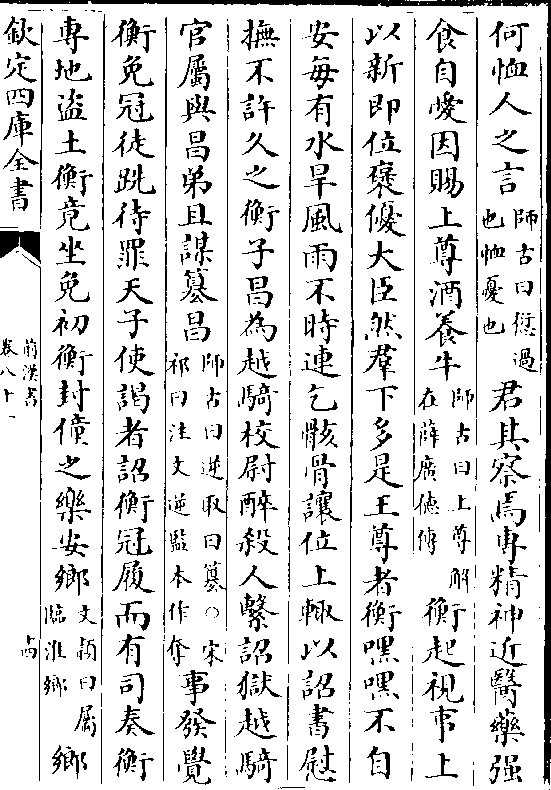 何恤人之言師古曰愆過也恤憂也君其察焉專精神近醫藥强
食自愛因賜上尊酒養牛師古曰上尊解在薛廣德傳衡起視事上
以新即位襃優大臣然羣下多是王尊者衡嘿嘿不自
安每有水旱風雨不時連乞骸骨讓位上輙以詔書慰
撫不許久之衡子昌為越騎校尉醉殺人繫詔獄越騎
官屬與昌弟且謀篡昌師古曰逆取曰篡○宋祁曰注文逆監本作奪事發覺
衡免冠徒跣待罪天子使謁者詔衡冠履而有司奏衡
專地盗土衡竟坐免初衡封僮之樂安鄉文穎曰屬臨淮鄉鄉
欽定四庫全書
前漢書
卷八十一
十四